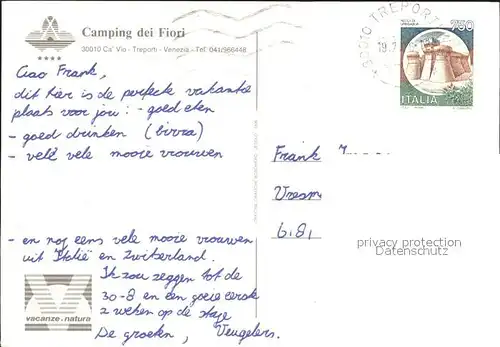 Camping dei Fiori
30010 Ca' Vio - Treporti - Venezia - Tel. 041/966448
****
Ciao Frank,
dit hier is de perfecte vakantie
plaats voor jou: - goed eten
- goed drinken (birra)
- veel vele mooie vrouwen
- en nog eens vele mooie vrouwen
uit Italië en Zwitserland.
Ik zou zeggen tot de
30-8 en een goeie eerste
2 weken op de stage
De groeten, Veugelers.
vacanze natura
30010 TREPORTI
19.7
750
ITALIA
Frank
6.8,
privacy protection
Datenschutz